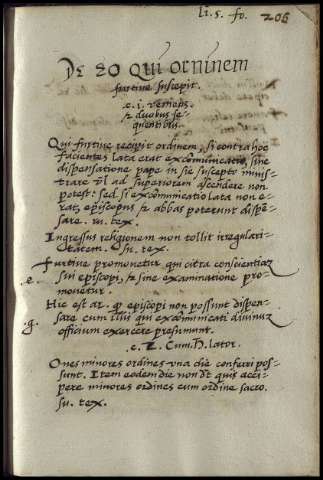 li. 5. fo. 206
De eo qui orninem
furtive suscepit.
c. i. veniens.
& duobus se=
quentibus.
Qui furtive recipit ordinem, si contra hoc
facientes lata erat excōmunicatio, sine
dispensatione pape in sic suscepto minis=
trare vl ad superiorem ascendere non
potest: sed si excōmunicatio lata non e=
rat, episcopus & abbas poterunt dispē=
sare. su. tex.
Ingressus religionem non tollit irregulari=
tatem. su. tex.
Furtive promovetur, qui citra conscientiaz
sui episcopi, & sine examinatione pro=
e. movetur.
Hic est ar. q episcopi non possunt dispen=
g. sare cum illis qui excōmunicati divinuz
officium exercere presumunt.
c. 2. Cum H. lator.
Oñes minores ordines una die conferri pos=
sunt. Item eodem die non dt quis acci=
pere minores ordines cum ordine sacro.
su. tex.